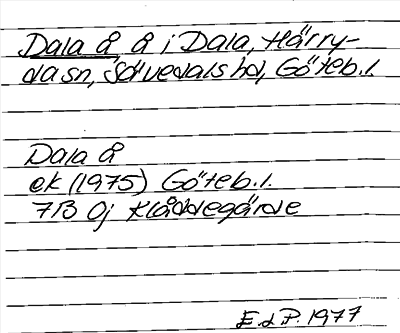 Dala å, å i Dala, Härry-
da sn, Sävedals hd, Göteb.l.
Dala å
ek (1975) Göteb.l.
7B 0j Klåddegärde
E.d.P. 1977